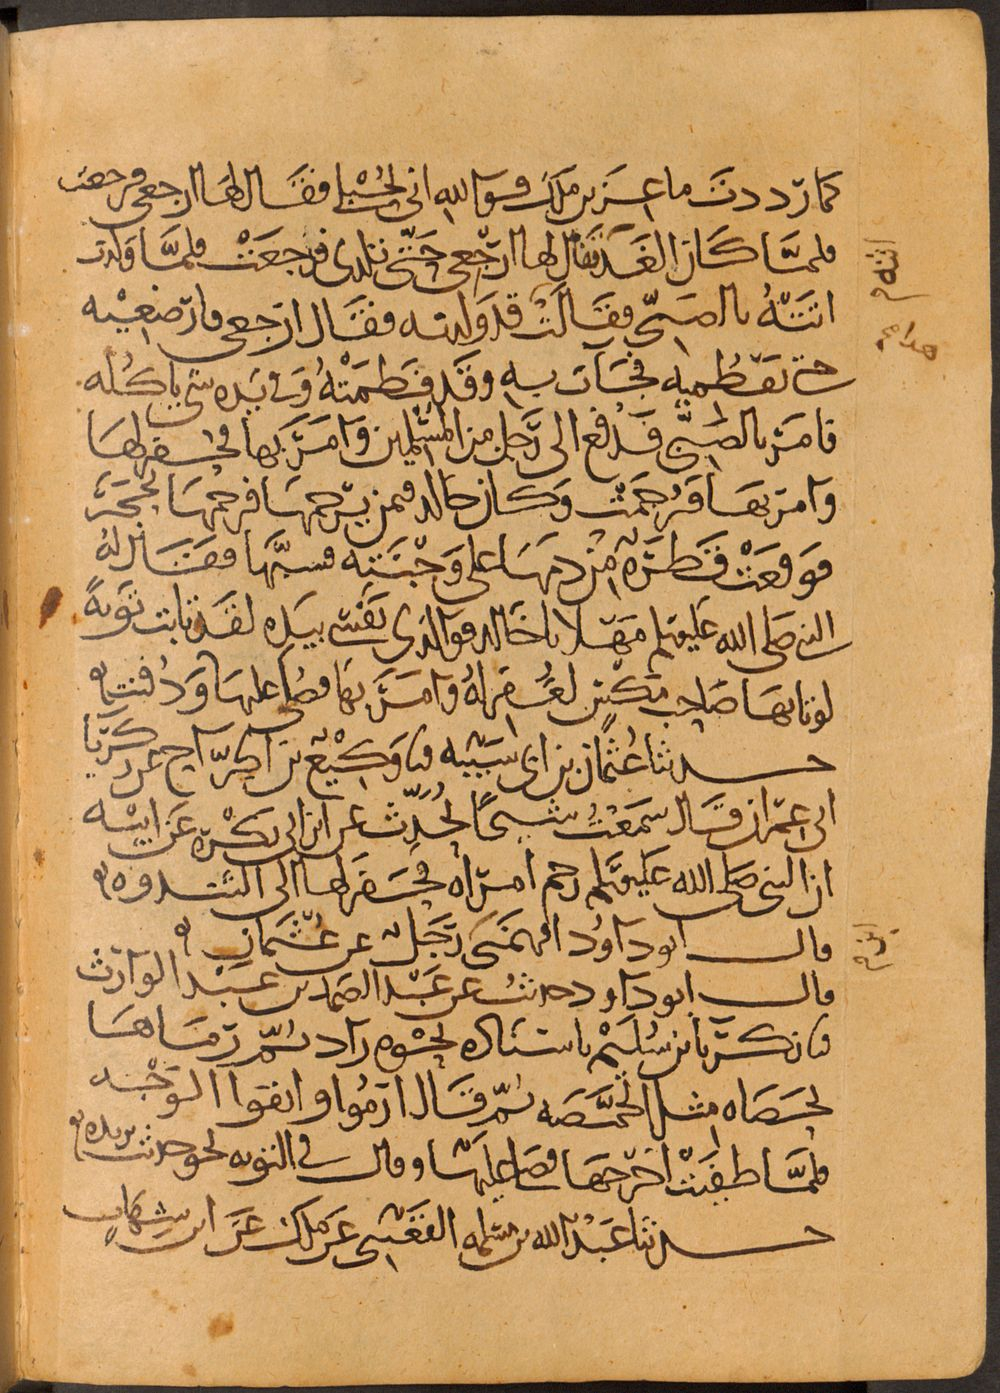 كما رددت ماعز بن ملك فوالله انى لحبلى فقال لها ارجعى فرجعت
فلمّا كان الغد فقال لها ارجعى حتّى تلدى فرجعت فلمّا ولدت
اتته بالصبىّ فقالت قد ولدته فقال ارجعى فارضعيه
حتى تفطميه فجات به وقد فطمته وفى يده شى ياكله
فامر بالصبىّ فدفع الى رجل من المسلمين وامر بها فحفر لها
وامر بها فرجمت وكان خالد فيمن يرجمها فرجمها بحجر
فوقعت قطرة من دمها على وجنته فسبّها فقال له
النبى صلى الله عليه وسلم مهلا يا خالد فوالذى نفسى بيده لقد تابت توبة
لو تابها صاحب مكس لغفر له وامر بها فصلى عليها ودفنت
حدثنا عثمان بن ابى شيبه نا وكيع بن الجرّاح عن زكريا
ابى عمران قال سمعت شيخًا يحدّث عن ابن ابى بكرة عن ابيه
ان النبى صلى الله عليه وسلم رجم امراه فحفر لها الى الثندوه
قال ابو داود افهمنى رجل عن عثمان
قال ابو داود حدثت عن عبد الصمد بن عبد الوارث
نا زكريا بن سليم باسناده نحوه زاد ثمّ رماها
بحصاه مثل الحمّصه ثمّ قال ارموا واتقوا الوجه
فلمّا طفيت اخرجها فصلى عليها وقال فى التوبه نحو حديث بريده
حدثنا عبد الله بن مسلمه القعنبى عن ملك عن ابن شهاب